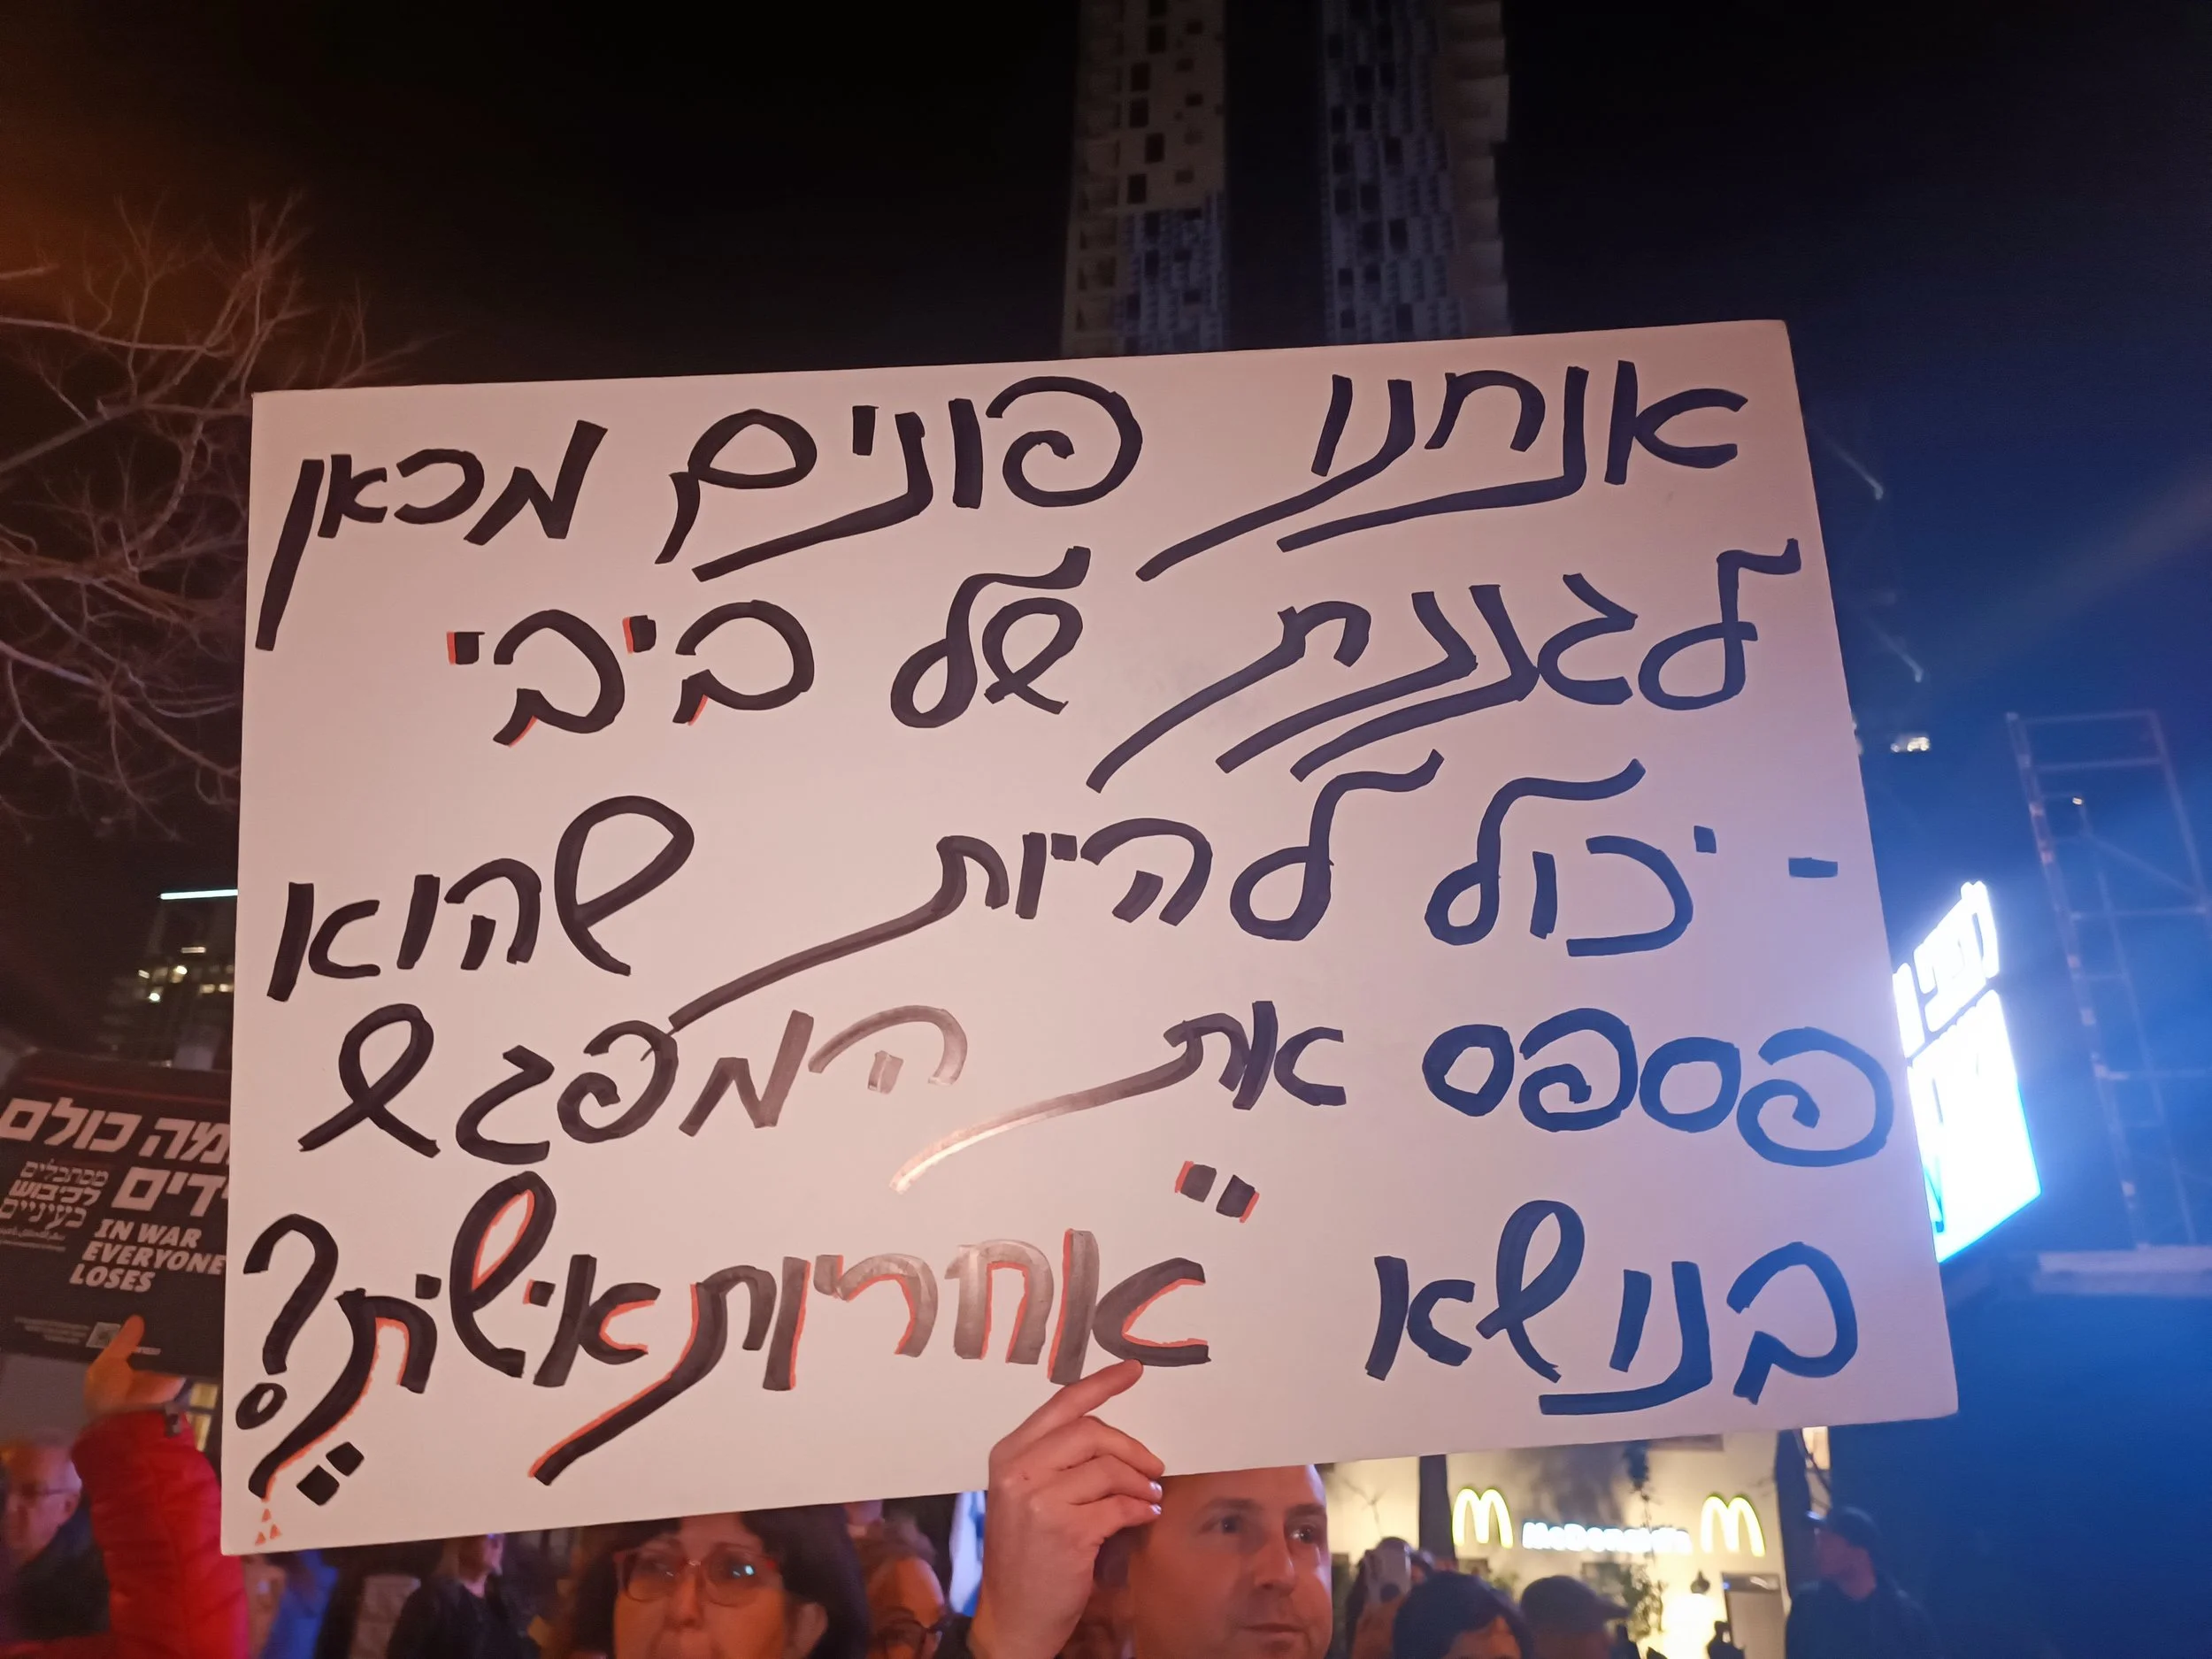 אנחנו פונים מכאן
לגננת של ביבי
- יכול להיות שהוא
פספס את המפגש
בנושא "אחריות אישית"?
מה כולם
מסתכלים
לכיבוש
בעיניים
IN WAR
EVERYONE
LOSES
McDonald's